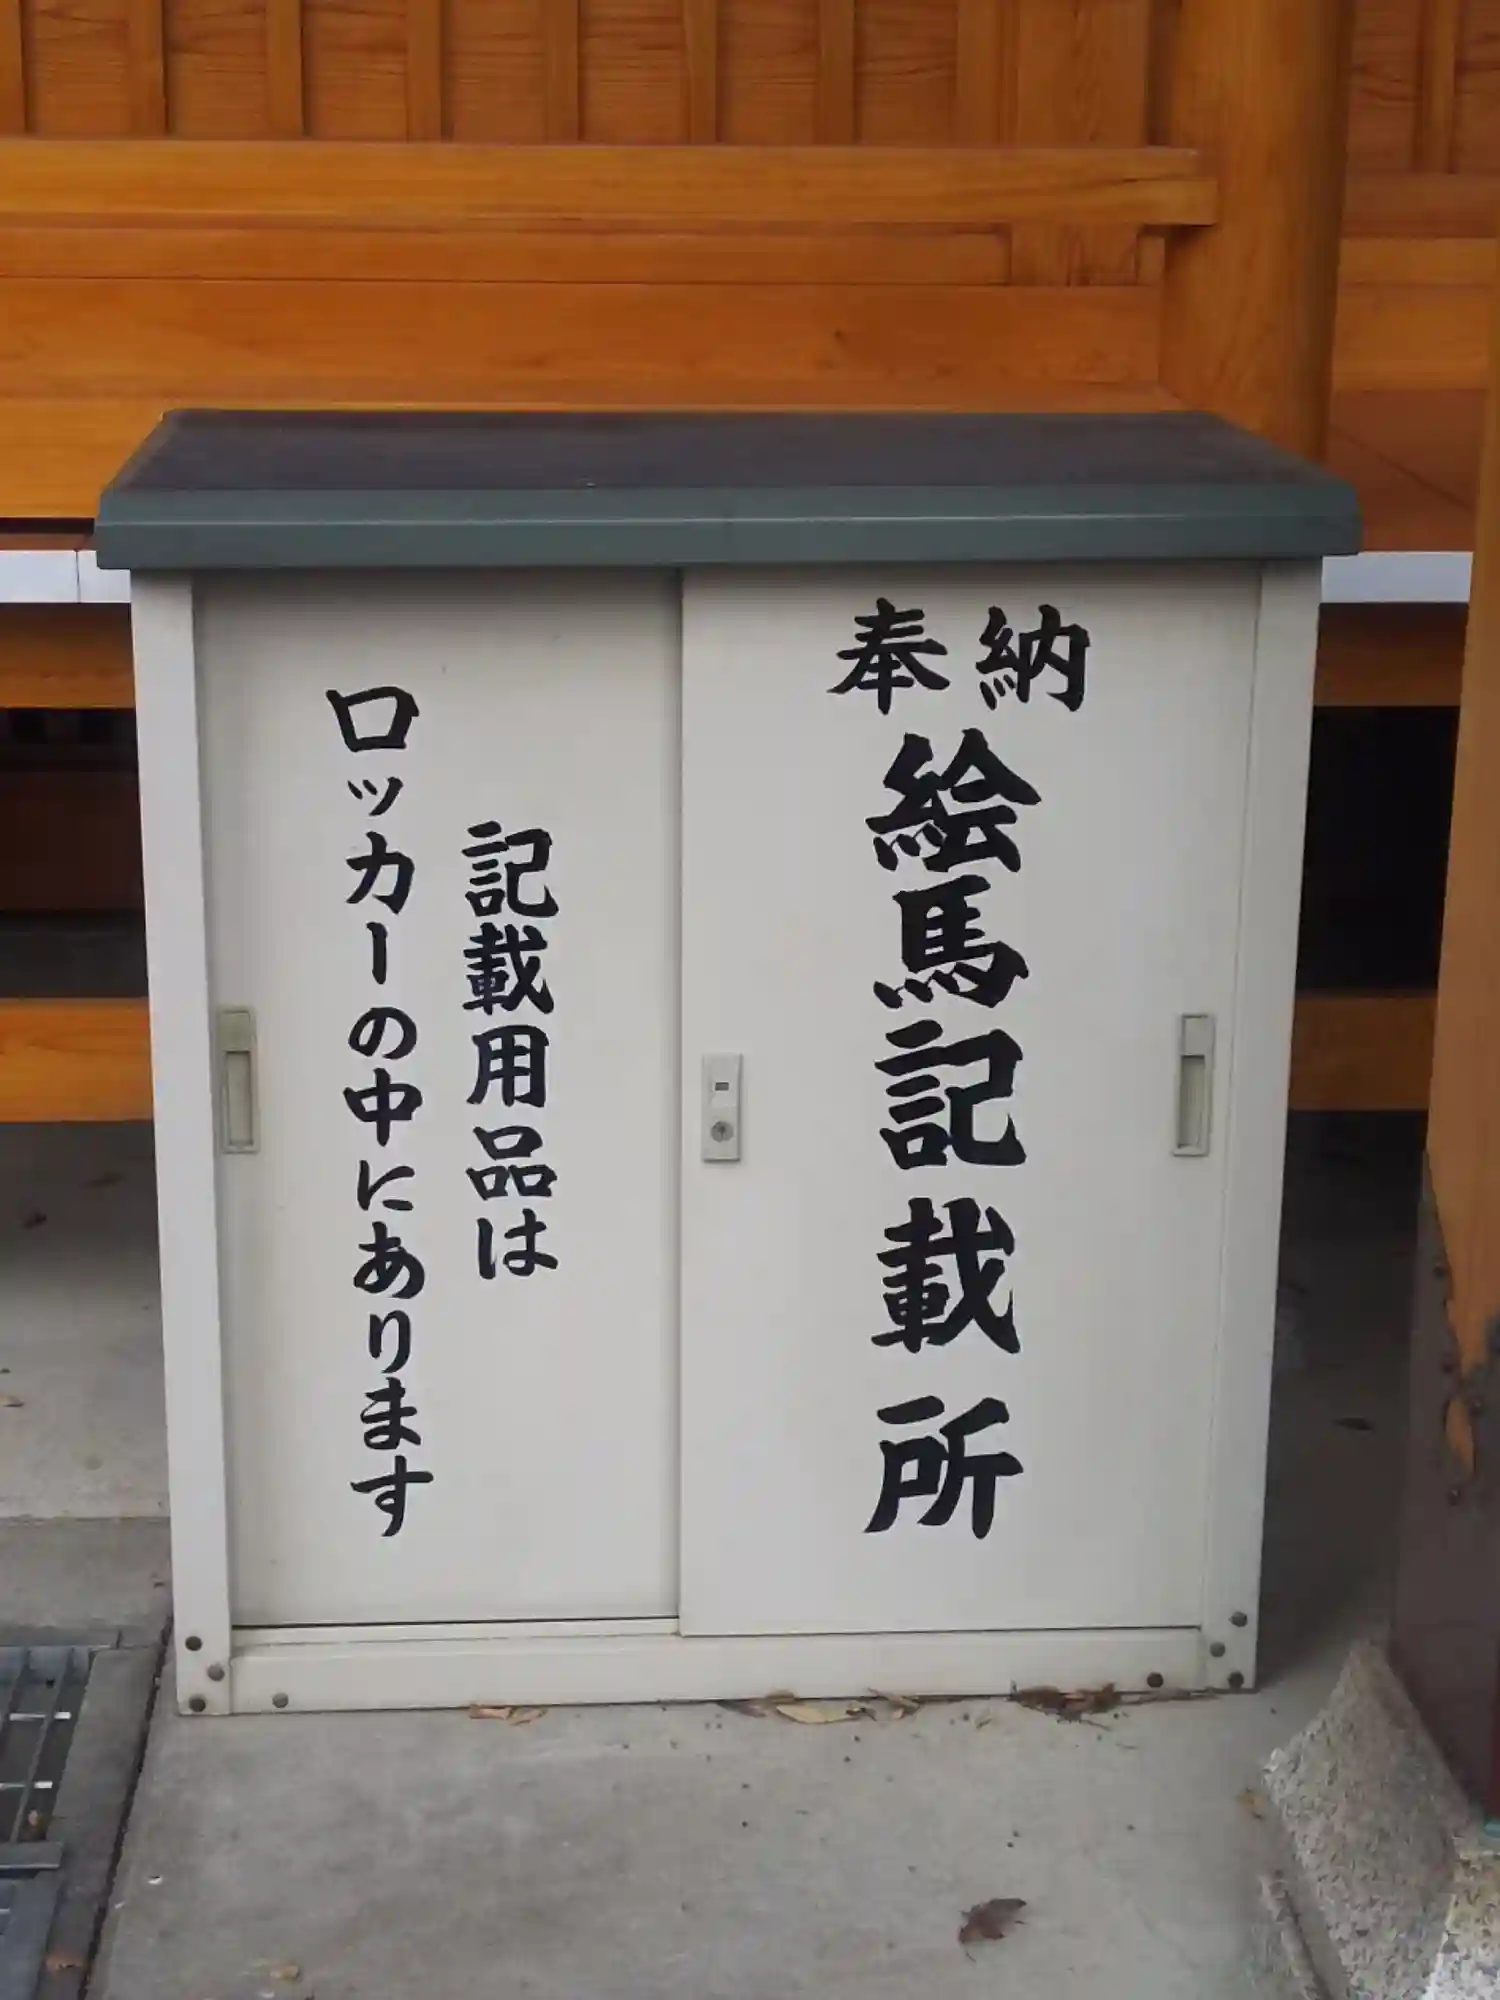 奉納
絵馬記載所
記載用品は
ロッカーの中にあります